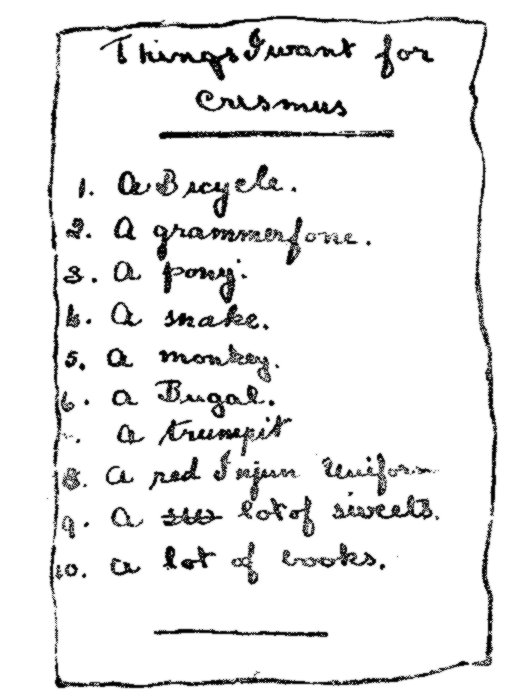 Things I want for
Crismus
1. A Bicycle.
2. A grammerfone.
3. A pony.
4. A snake.
5. A monkey.
6. A Bugal.
7. A trumpit
8. A red Injun Uniform
9. A lot of sweets.
10. A lot of books.